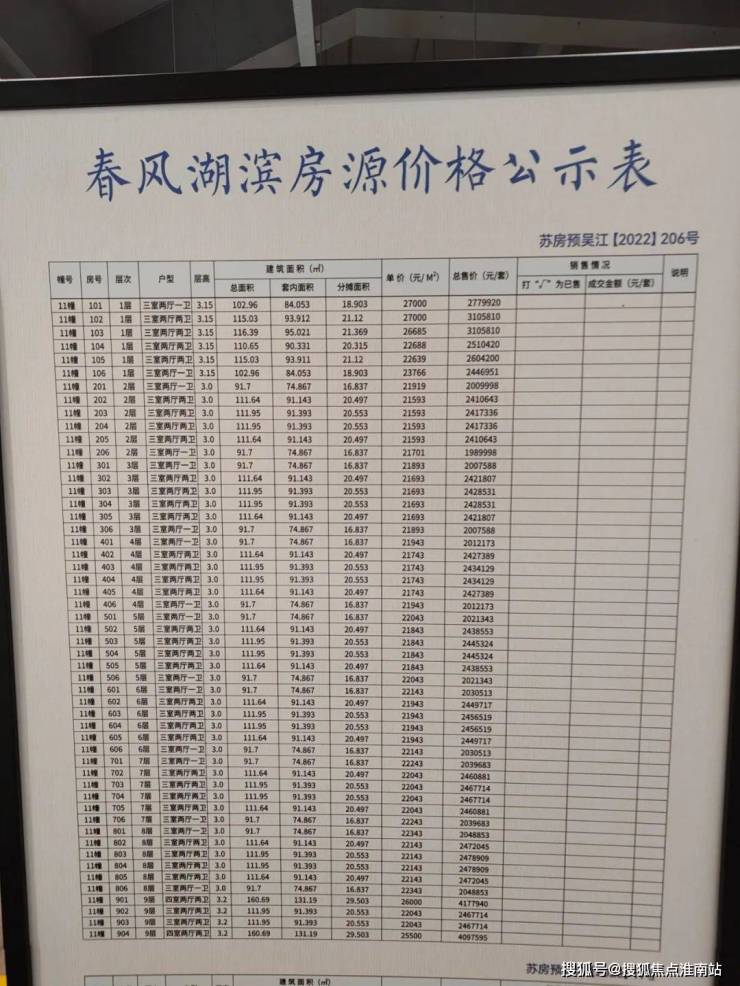 春风湖滨房源价格公示表
苏房预吴江【2022】206号
幢号 房号 层次 户型 层高 建筑面积（㎡） 单价（元/M²） 总售价（元/套） 销售情况 说明
总面积 套内面积 分摊面积 打“√”为已售 成交金额（元/套）
11幢 101 1层 三室两厅一卫 3.15 102.96 84.053 18.903 27000 2779920
11幢 102 1层 三室两厅两卫 3.15 115.03 93.912 21.12 27000 3105810
11幢 103 1层 三室两厅两卫 3.15 116.39 95.021 21.369 26685 3105810
11幢 104 1层 三室两厅两卫 3.15 110.65 90.331 20.315 22688 2510420
11幢 105 1层 三室两厅两卫 3.15 115.03 93.911 21.12 22639 2604200
11幢 106 1层 三室两厅一卫 3.15 102.96 84.053 18.903 23766 2446951
11幢 201 2层 三室两厅一卫 3.0 91.7 74.867 16.837 21919 2009998
11幢 202 2层 三室两厅两卫 3.0 111.64 91.143 20.497 21593 2410643
11幢 203 2层 三室两厅两卫 3.0 111.95 91.393 20.553 21593 2417336
11幢 204 2层 三室两厅两卫 3.0 111.95 91.393 20.553 21593 2417336
11幢 205 2层 三室两厅两卫 3.0 111.64 91.143 20.497 21593 2410643
11幢 206 2层 三室两厅一卫 3.0 91.7 74.867 16.837 21701 1989998
11幢 301 3层 三室两厅一卫 3.0 91.7 74.867 16.837 21893 2007588
11幢 302 3层 三室两厅两卫 3.0 111.64 91.143 20.497 21693 2421807
11幢 303 3层 三室两厅两卫 3.0 111.95 91.393 20.553 21693 2428531
11幢 304 3层 三室两厅两卫 3.0 111.95 91.393 20.553 21693 2428531
11幢 305 3层 三室两厅两卫 3.0 111.64 91.143 20.497 21693 2421807
11幢 306 3层 三室两厅一卫 3.0 91.7 74.867 16.837 21893 2007588
11幢 401 4层 三室两厅一卫 3.0 91.7 74.867 16.837 21943 2012173
11幢 402 4层 三室两厅两卫 3.0 111.64 91.143 20.497 21743 2427389
11幢 403 4层 三室两厅两卫 3.0 111.95 91.393 20.553 21743 2434129
11幢 404 4层 三室两厅两卫 3.0 111.95 91.393 20.553 21743 2434129
11幢 405 4层 三室两厅两卫 3.0 111.64 91.143 20.497 21743 2427389
11幢 406 4层 三室两厅一卫 3.0 91.7 74.867 16.837 21943 2012173
11幢 501 5层 三室两厅一卫 3.0 91.7 74.867 16.837 22043 2021343
11幢 502 5层 三室两厅两卫 3.0 111.64 91.143 20.497 21843 2438553
11幢 503 5层 三室两厅两卫 3.0 111.95 91.393 20.553 21843 2445324
11幢 504 5层 三室两厅两卫 3.0 111.95 91.393 20.553 21843 2445324
11幢 505 5层 三室两厅两卫 3.0 111.64 91.143 20.497 21843 2438553
11幢 506 5层 三室两厅一卫 3.0 91.7 74.867 16.837 22043 2021343
11幢 601 6层 三室两厅一卫 3.0 91.7 74.867 16.837 22143 2030513
11幢 602 6层 三室两厅两卫 3.0 111.64 91.143 20.497 21943 2449717
11幢 603 6层 三室两厅两卫 3.0 111.95 91.393 20.553 21943 2456519
11幢 604 6层 三室两厅两卫 3.0 111.95 91.393 20.553 21943 2456519
11幢 605 6层 三室两厅两卫 3.0 111.64 91.143 20.497 21943 2449717
11幢 606 6层 三室两厅一卫 3.0 91.7 74.867 16.837 22143 2030513
11幢 701 7层 三室两厅一卫 3.0 91.7 74.867 16.837 22243 2039683
11幢 702 7层 三室两厅两卫 3.0 111.64 91.143 20.497 22043 2460881
11幢 703 7层 三室两厅两卫 3.0 111.95 91.393 20.553 22043 2467714
11幢 704 7层 三室两厅两卫 3.0 111.95 91.393 20.553 22043 2467714
11幢 705 7层 三室两厅两卫 3.0 111.64 91.143 20.497 22043 2460881
11幢 706 7层 三室两厅一卫 3.0 91.7 74.867 16.837 22243 2039683
11幢 801 8层 三室两厅一卫 3.0 91.7 74.867 16.837 22343 2048853
11幢 802 8层 三室两厅两卫 3.0 111.64 91.143 20.497 22143 2472045
11幢 803 8层 三室两厅两卫 3.0 111.95 91.393 20.553 22143 2478909
11幢 804 8层 三室两厅两卫 3.0 111.95 91.393 20.553 22143 2478909
11幢 805 8层 三室两厅两卫 3.0 111.64 91.143 20.497 22143 2472045
11幢 806 8层 三室两厅一卫 3.0 91.7 74.867 16.837 22343 2048853
11幢 901 9层 四室两厅两卫 3.2 160.69 131.19 29.503 26000 4177940
11幢 902 9层 三室两厅两卫 3.2 111.95 91.393 20.553 22043 2467714
11幢 903 9层 三室两厅两卫 3.2 111.95 91.393 20.553 22043 2467714
11幢 904 9层 四室两厅两卫 3.2 160.69 131.19 29.503 25500 4097595
苏房预
建筑面积（㎡）
搜狐号@搜狐焦点淮南站